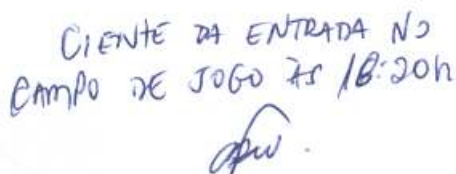 CIENTE DA ENTRADA NO
CAMPO DE JOGO ÀS 18:20h